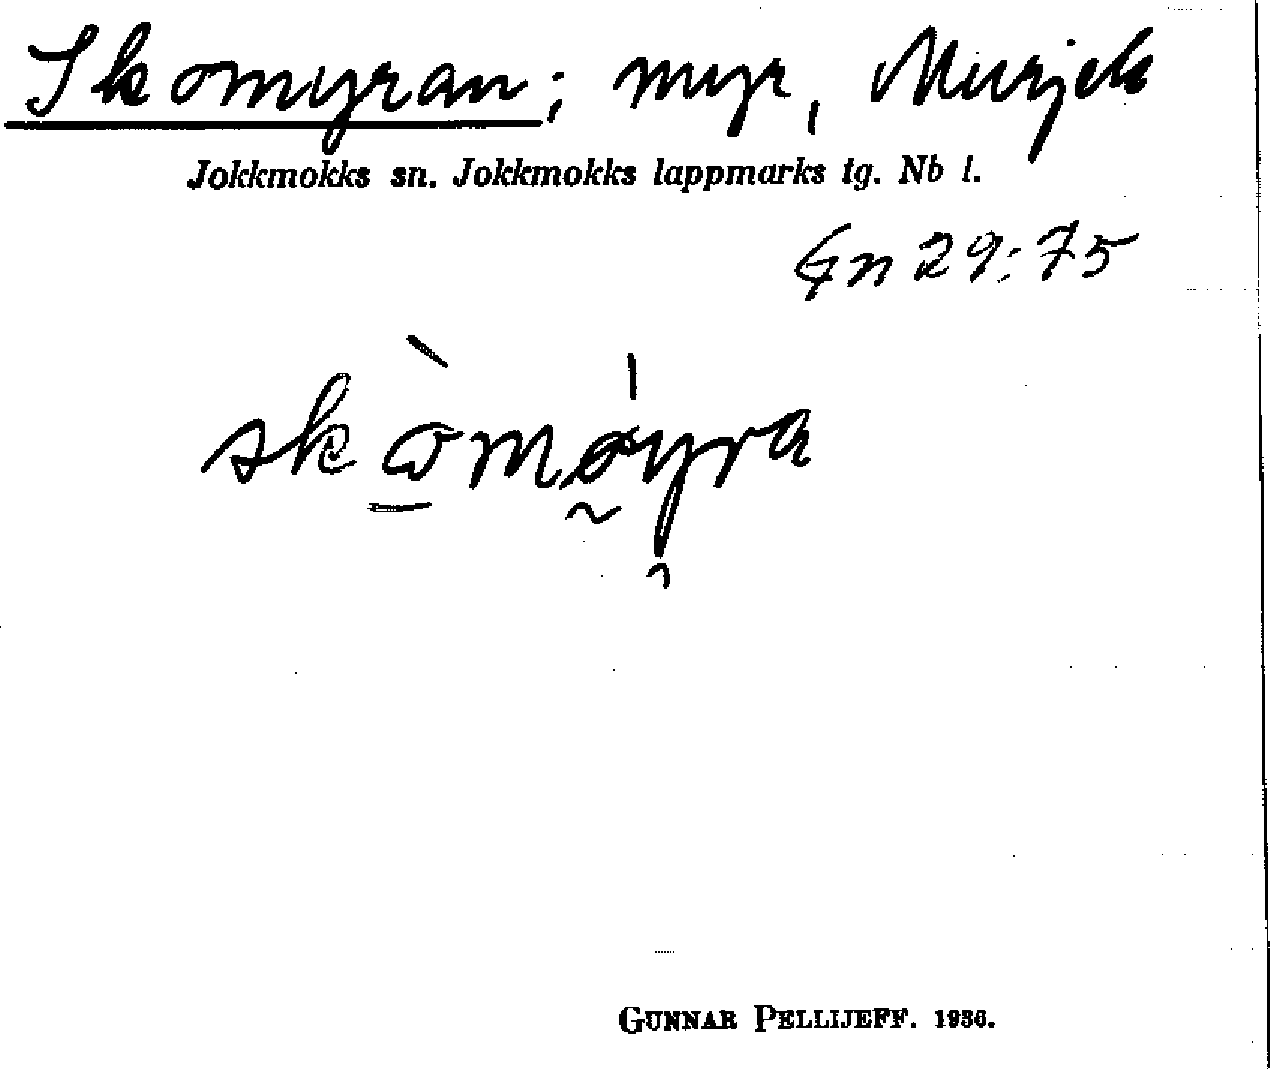 Skomyran; myr, Murjek
Jokkmokks sn. Jokkmokks lappmarks tg. Nb l.
Gn 29:75
GUNNAR PELLIJEFF. 1936.